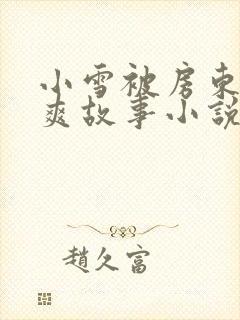 小雪被房东
爽故事小說
趙久富